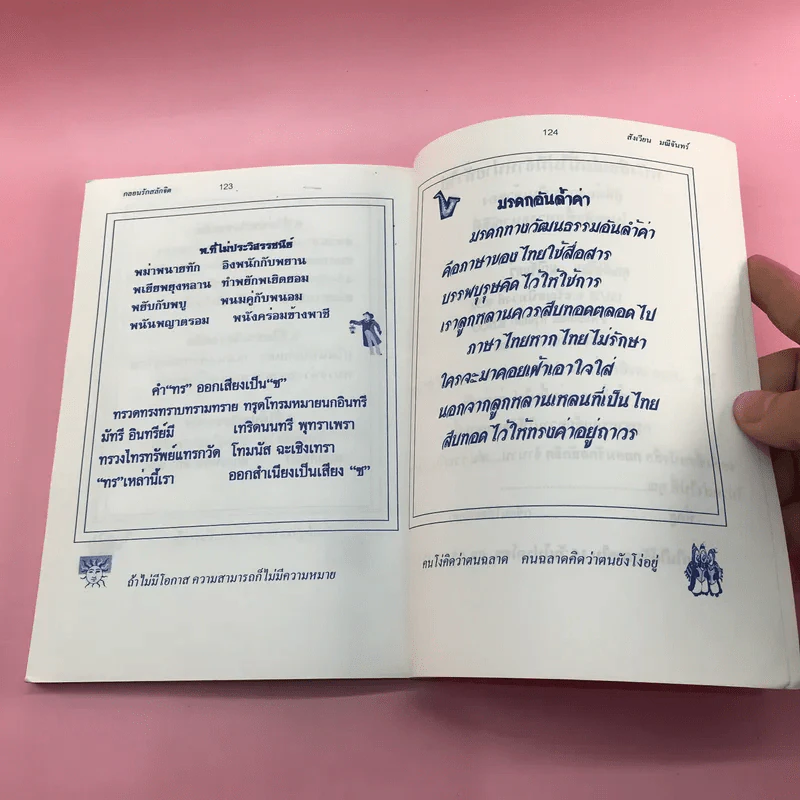 กลอนรักสลักจิต 123
พ.ที่ไม่ประวิสรรชนีย์
พม่าพนายทัก อิงพนักกับพยาน
พเยียพยุงหลาน ทำพยักพเยิดยอม
พยับกับพบู พนมคู่กับพนอม
พนันพญาตรอม พนังคร่อมข้างพาชี
คำ"ทร" ออกเสียงเป็น"ซ"
ทรวดทรงทราบทรามทราย ทรุดโทรมหมายนกอินทรี
มัทรี อินทรีย์มี เทริดนนทรี พุทราเพรา
ทรวงไทรทรัพย์แทรกวัด โทมนัส ฉะเชิงเทรา
"ทร"เหล่านี้เรา ออกสำเนียงเป็นเสียง "ซ"
ถ้าไม่มีโอกาส ความสามารถก็ไม่มีความหมาย
124 สังเวียน มณีจันทร์
มรดกอันล้ำค่า
มรดกทางวัฒนธรรมอันล้ำค่า
คือภาษาของไทยใช้สื่อสาร
บรรพบุรุษคิดไว้ให้ใช้การ
เราลูกหลานควรสืบทอดตลอดไป
ภาษาไทยหากไทยไม่รักษา
ใครจะมาคอยเฝ้าเอาใจใส่
นอกจากลูกหลานเหลนที่เป็นไทย
สืบทอดไว้ให้ทรงค่าอยู่ถาวร
คนโง่คิดว่าตนฉลาด คนฉลาดคิดว่าตนยังโง่อยู่